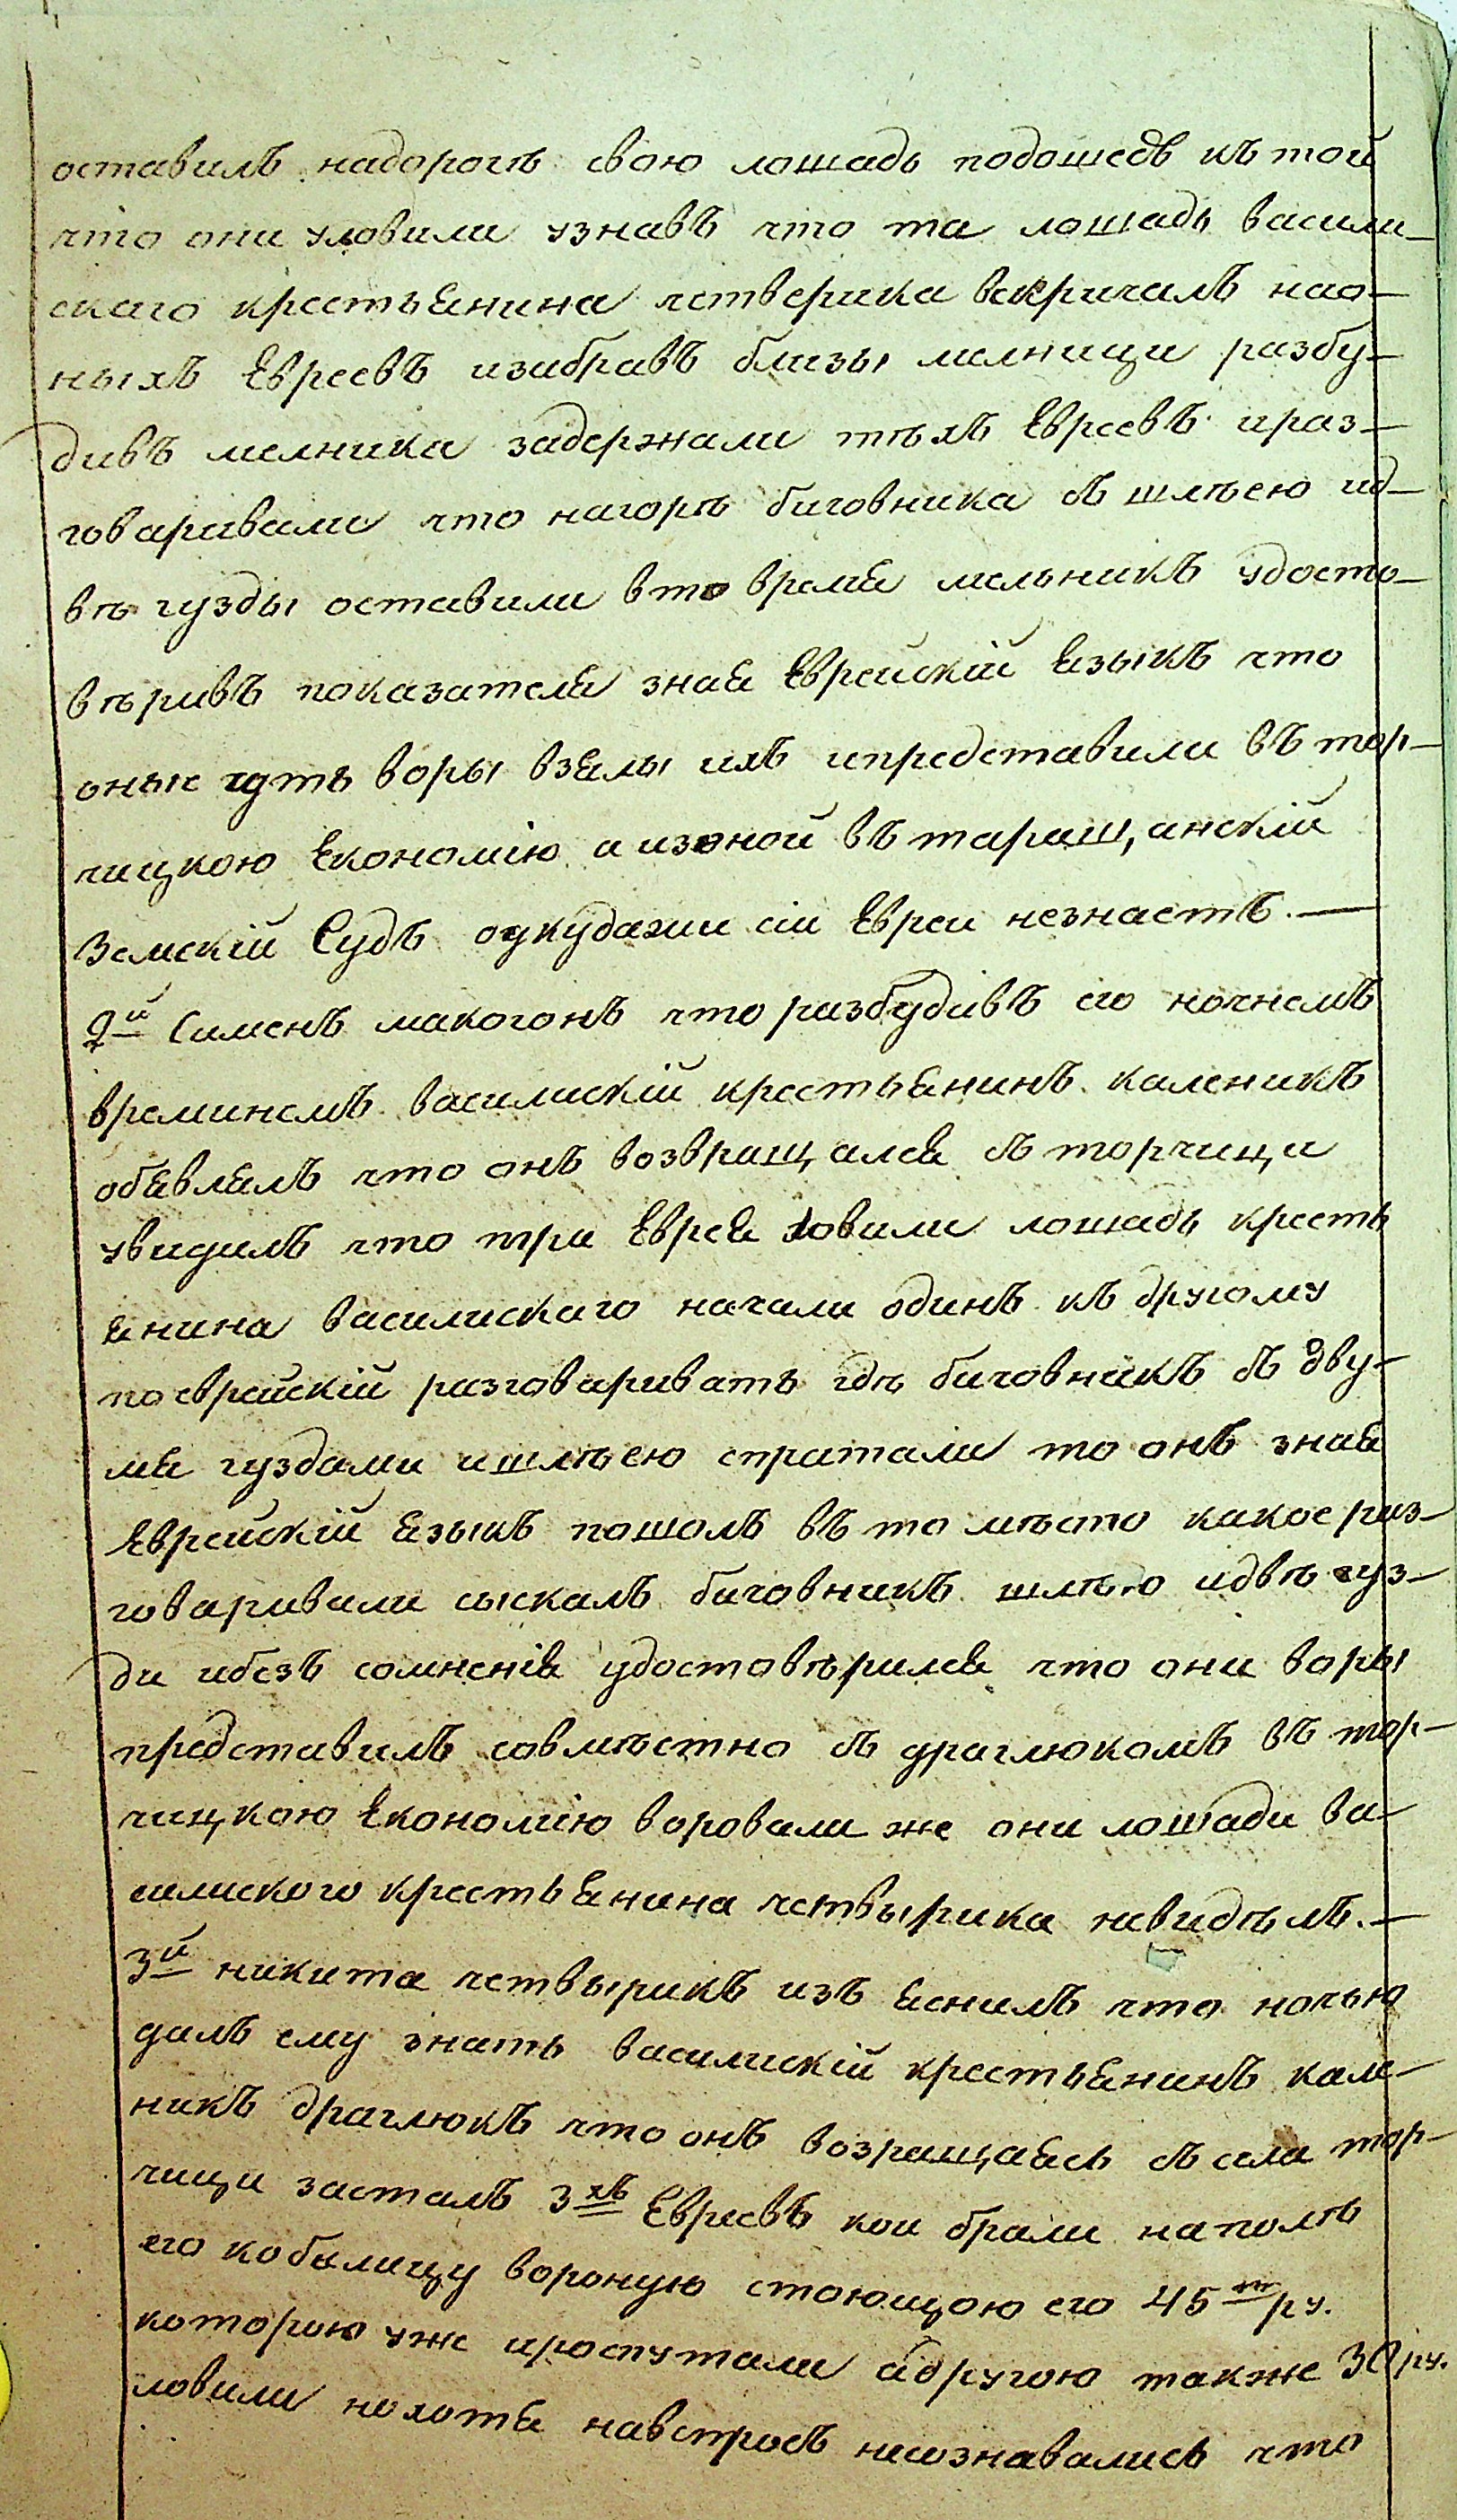 оставилъ надорогѣ свою лошадь подошедъ къ той
что они уловили узнавъ что та лошадь васили-
скаго крестьянина четверика вскричалъ нао-
ныхъ Евреевъ изабравъ близы мелници разбу-
дивъ мелника задержали тѣхъ Евреевъ ираз-
говаривали что нагорѣ батовника съ шлѣею ид-
вѣ гузды оставили вто время мельникъ удосто-
вѣривъ показателя зная Еврейскій языкъ что
оные суть воры взялы ихъ ипредставили въ тор-
чицкою Економію а изоной въ таращанскій
Земскій Судъ откудажи сіи Евреи незнаетъ.—
2й Сименъ макогонъ что разбудивъ его ночнемъ
времинемъ василискій крестьянинъ каленикъ
обявлялъ что онъ возвращался съ торчици
увидилъ что три Еврея ловили лошадь кресть
янина василискаго начали одинъ къ другому
по еврейскій разговаривать гдѣ батовникъ съ дву-
мя гуздами ишлѣею спратали то онъ зная
Еврейскій языкъ пошолъ въ то мѣсто какое раз-
говаривали сыскалъ батовникъ шлѣю идвѣ гуз-
ди ибезъ сомненія удостовѣрился что они воры
представилъ совмѣстно съ драглюкомъ въ тор-
чицкою Економію воровали же они лошади ва-
силиского крестьянина четвырика невидѣлъ.—
3й никита четвырикъ изъ яснилъ что ночью
далъ ему знать василискій крестьянинъ кале-
никъ драглюкъ что онъ возращаясь съ села тор-
чици засталъ 3хъ Евреевъ кои брали наполѣ
его кобылицу вороную стоющою его 45т ру.
которою уже ироспутали адругою также 30 ру.
ловили но хотя навспросъ несознавались что